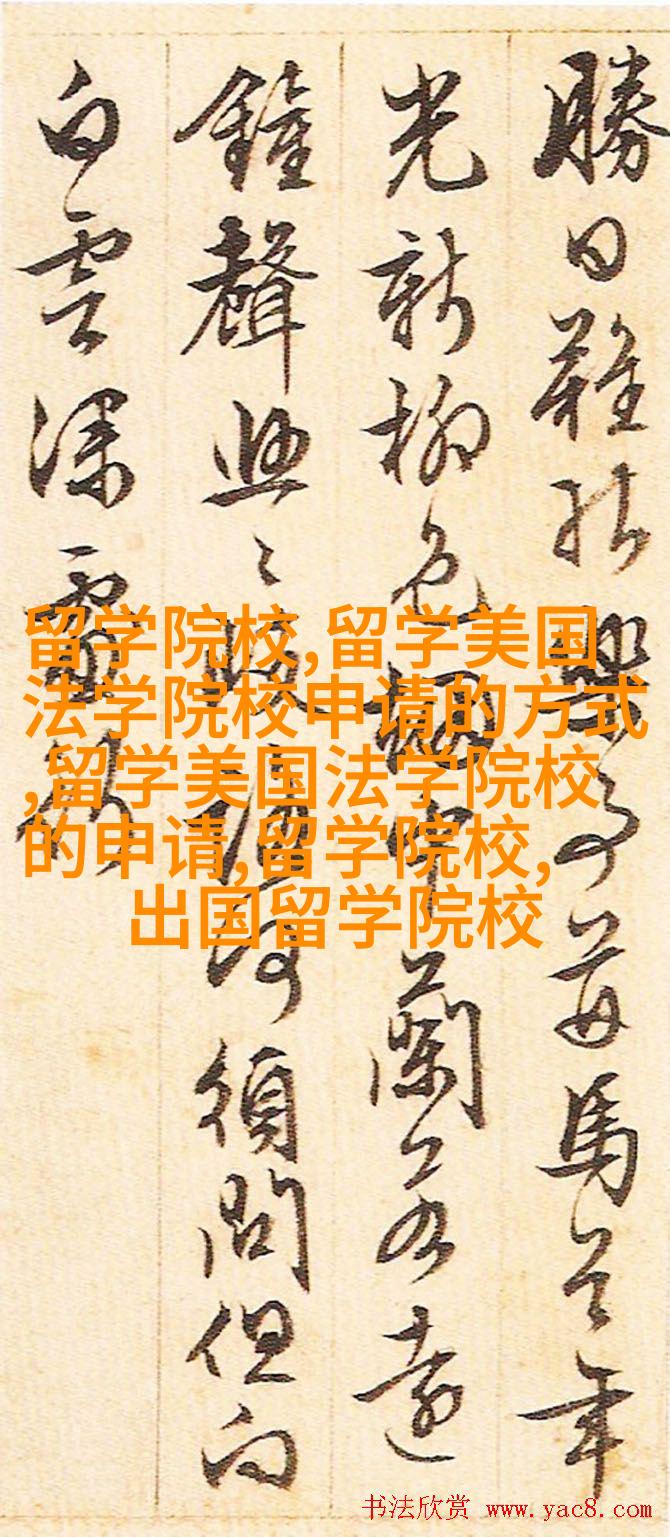 勝日難馬年
光新柳色烟中蘭若遠
鐘聲何須問但向
白雲深處
留学院校,留学美国
法学院校申请的方式
,留学美国法学院校
的申请,留学院校,
出国留学院校
书法欣赏 www.yac8.com